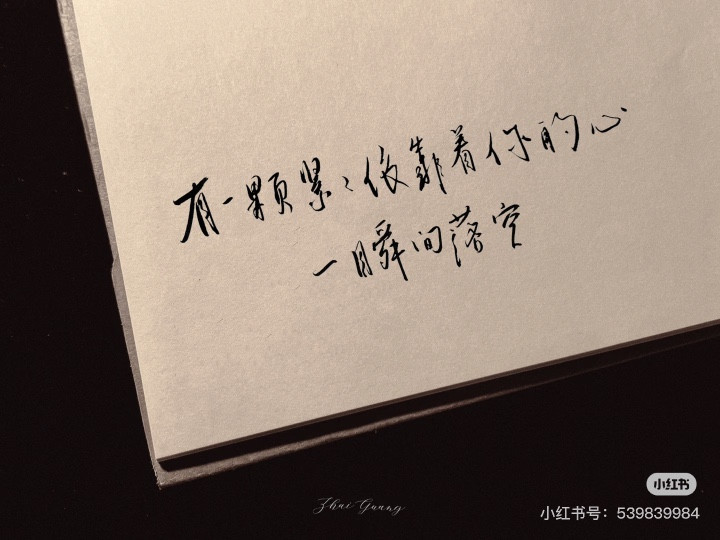 有一颗紧紧依靠着你的心
一瞬间落空
Zhai Guang
小红书
小红书号：539839984